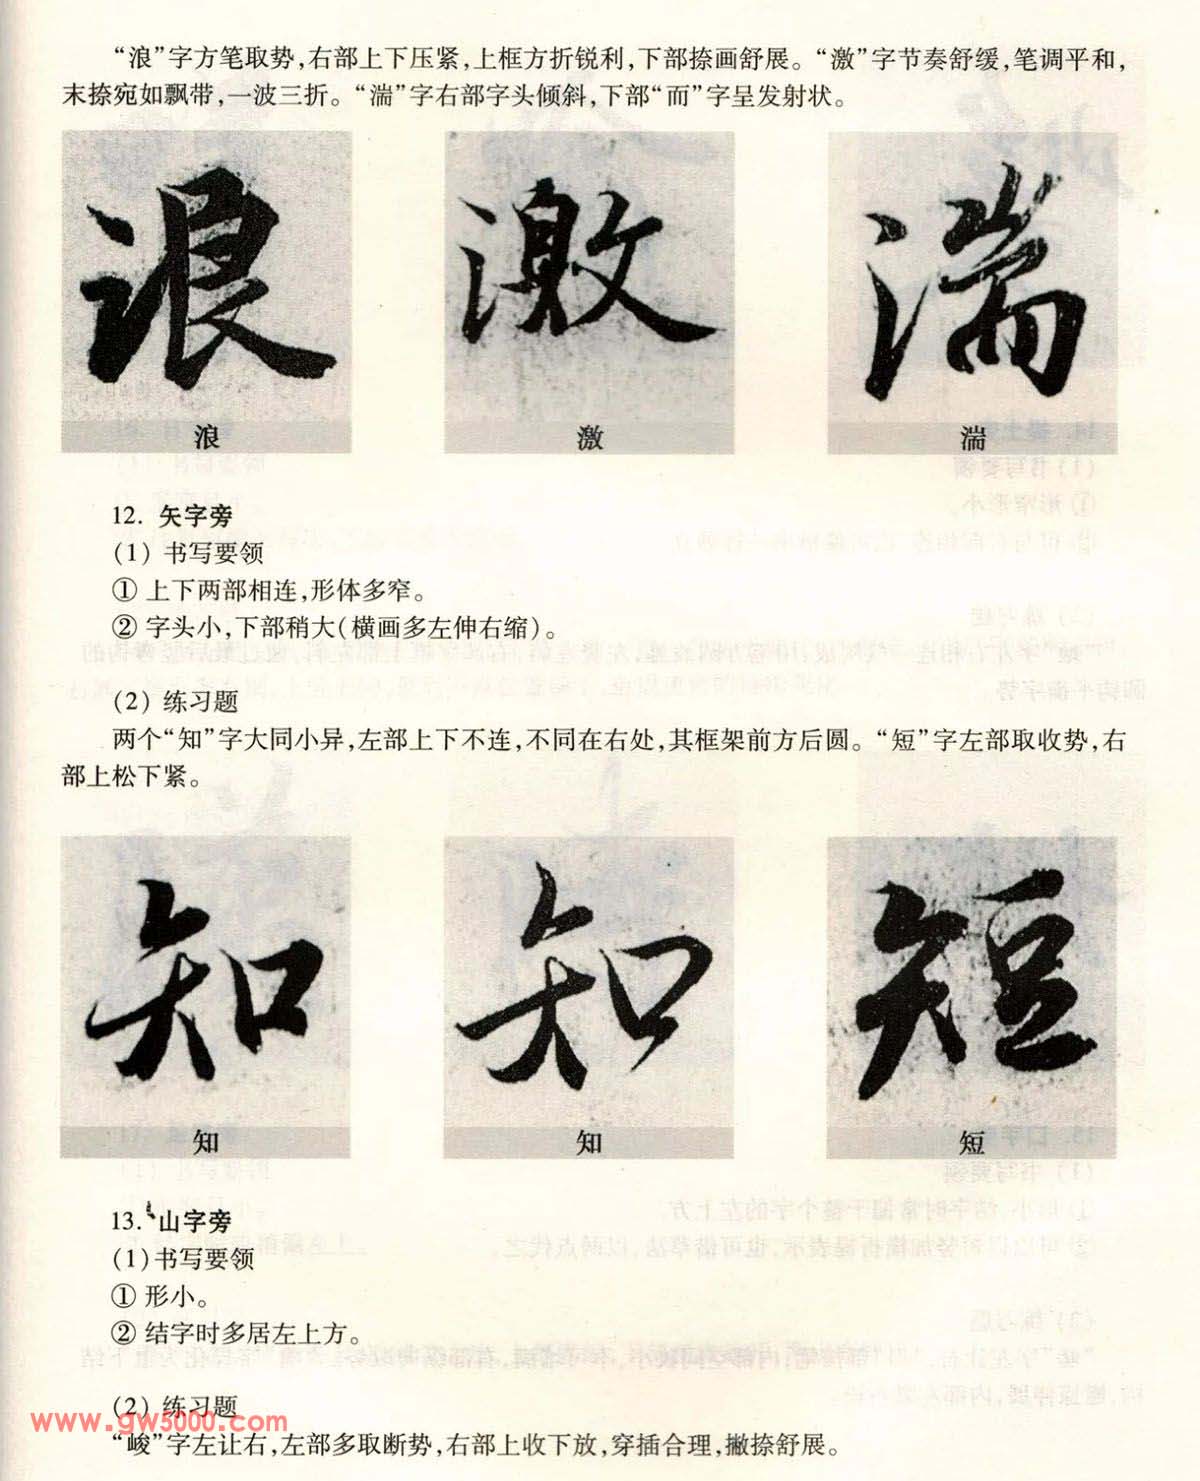 “浪”字方笔取势,右部上下压紧,上框方折锐利,下部捺画舒展。“激”字节奏舒缓,笔调平和,
末捺宛如飘带,一波三折。“湍”字右部字头倾斜,下部“而”字呈发射状。
浪 激 湍
浪 激 湍
12. 矢字旁
(1) 书写要领
① 上下两部相连,形体多窄。
② 字头小,下部稍大(横画多左伸右缩)。
(2) 练习题
两个“知”字大同小异,左部上下不连,不同在右处,其框架前方后圆。“短”字左部取收势,右
部上松下紧。
知 知 短
知 知 短
13. 山字旁
(1)书写要领
① 形小。
② 结字时多居左上方。
(2) 练习题
www.gw5000.com
“峻”字左让右,左部多取断势,右部上收下放,穿插合理,撇捺舒展。